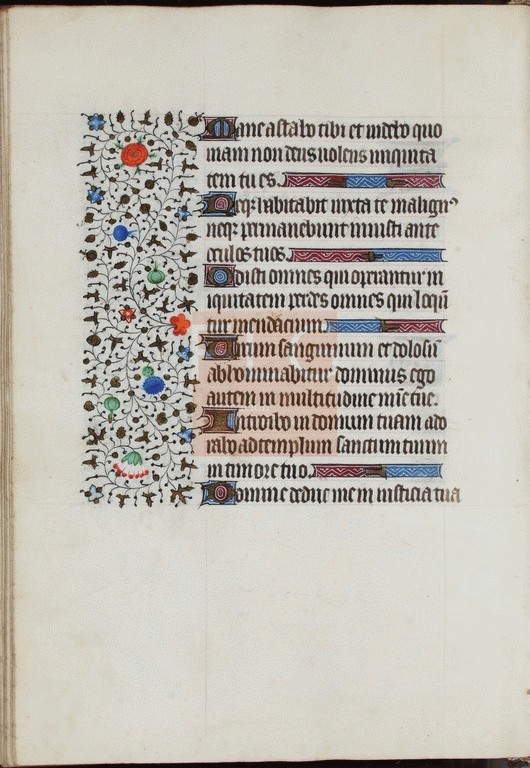 Mane astabo tibi et uidebo quo
niam non deus uolens iniquita
tem tu es.
Neqꝫ habitabit iuxta te malignꝰ
neqꝫ permanebunt iniusti ante
oculos tuos.
Odisti omnes qui operantur in
iquitatem perdes omnes qui loqūt
tur mendacium
Uirum sanguinum et dolosū
abhominabitur dominus ego
autem in multitudine mīe tue.
Introibo in domum tuam ado
rabo ad templum sanctum tuum
in timore tuo
Domine deduc me in iusticia tua